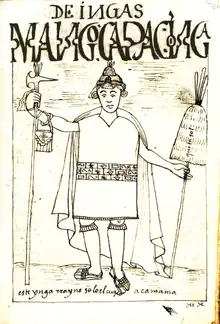 DE INGAS
MANGOCAPACINGA
este ynga reyno solo el cuzco acamama